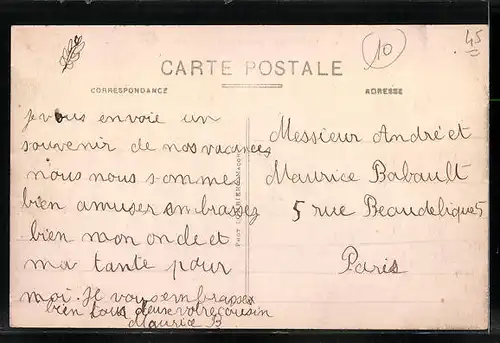 45
10
CARTE POSTALE
CORRESPONDANCE
ADRESSE
je vous envoie un
souvenir de nos vacances
nous nous somme
bien amuser embrassez
bien mon oncle et
ma tante pour
moi. Je vous embrasse
bien tous deux votre cousin
Maurice B
Messieur André et
Maurice Babault
5 rue Beaudeliques
Paris
PHOT